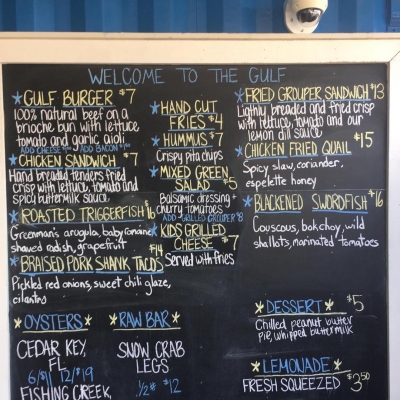 WELCOME TO THE GULF
GULF BURGER $7
100% natural beef on a
brioche bun with lettuce
tomato and garlic aioli
ADD CHEESE ADD BACON
CHICKEN SANDWICH $7
Hand breaded tenders fried
crisp with lettuce, tomato and
spicy buttermilk sauce
ROASTED TRIGGERFISH $16
Greenman's arugula, baby romaine
shaved radish, grapefruit
BRAISED PORK SHANK TACOS $14
Pickled red onions, sweet chili glaze,
cilantro
HAND CUT
FRIES $4
HUMMUS $7
Crispy pita chips
MIXED GREEN
SALAD $5
Balsamic dressing +
cherry tomatoes
ADD GRILLED GROUPER $8
KIDS GRILLED
CHEESE $7
Served with fries
FRIED GROUPER SANDWICH $13
Lightly breaded and fried crisp
with lettuce, tomato and our
lemon dill sauce
CHICKEN FRIED QUAIL $15
Spicy slaw, coriander,
espelette honey
BLACKENED SWORDFISH $16
Couscous, bok choy, wild
shallots, marinated tomatoes
OYSTERS
CEDAR KEY,
FL
6/$11 12/$19
FISHING CREEK,
RAW BAR
SNOW CRAB
LEGS
1/2# $12
DESSERT $5
Chilled peanut butter
pie, whipped buttermilk
LEMONADE
FRESH SQUEEZED $3.50